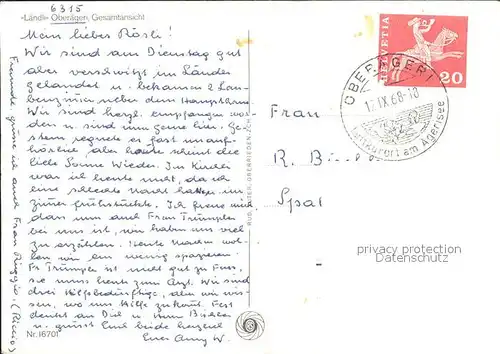 6315
«Ländli» Oberägeri, Gesamtansicht
Mein liebes Rösli!
Wir sind am Dienstag gut
aber verschwitzt im Ländli
gelandet u. bekamen 2
nebem dem Haupthaus.
Wir sind herzl. empfangen wor-
den u. sind nun gerne hier. Ge-
stern regnete es fast unauf-
hörlich, aber heute scheint die
liebe Sonne wieder. Im Kirchli
war ich heute nicht, da ich
eine schlechte Nacht hatte, im
Zimmer frühstückte. Ich freue mich
dass nun auch Frau Trümpler
bei uns ist, wir haben uns viel
zu erzählen. Heute Nachm. wol-
len wir ein wenig spazieren
Fr Trümpler ist nicht gut zu Fuss,
sie muss heute zum Arzt. Wir sind
drei Hilfsbedürftige, aber wir wis-
sen, wo uns Hilfe zukommt. Fest
denkt an Dich u. Dein
u. grüsst Euch beide herzlich
Eure Anny W.
Freundl. Grüsse an auch Frau
Nr. 16701
HELVETIA
20
OBERÄGERI
17.IX.68-18
am Ägerisee
Frau
R.
Spal
privacy protection
Datenschutz